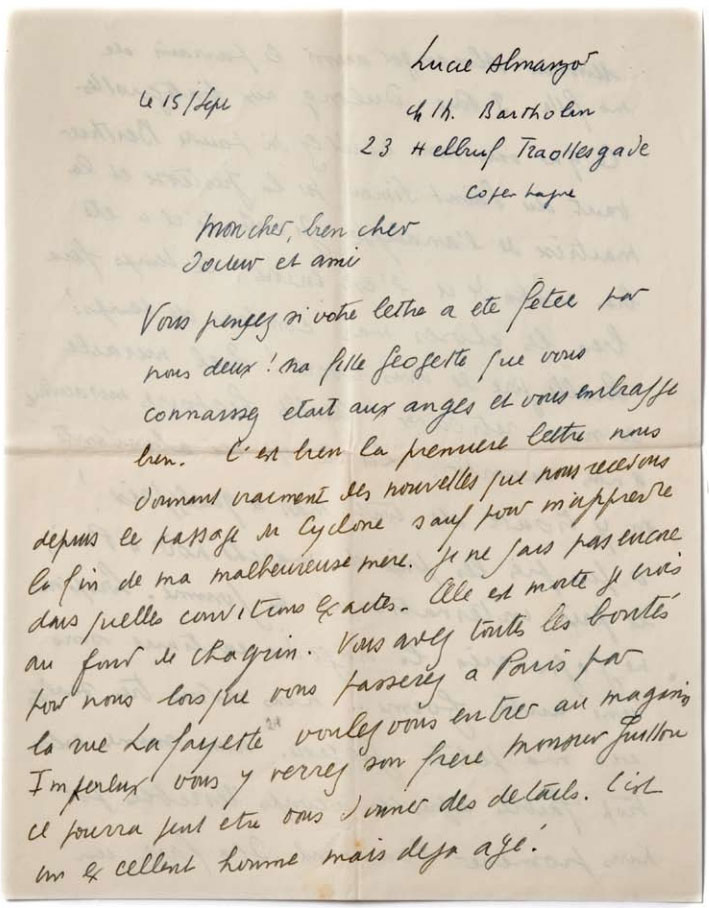 Lucie Almanzor
ch Th. Bartholin
le 15/Sept
23 Helbruf Traollesgade
Copenhague
Mon cher, bien cher
Docteur et ami
Vous pensez si votre lettre a ete fêtée par
nous deux! Ma fille Geogette que vous
connaissez etait aux anges et vous embrasse
bien. C'est bien la premiere lettre nous
donnant vraiment des nouvelles que nous recevons
depuis le passage du Cyclone sauf pour m'apprendre
la fin de ma malheureuse mere. Je ne sais pas encore
dans quelles conditions exactes. Elle est morte je crois
au fond de chagrin. Vous avez toutes les bontés
pour nous lorsque vous passerez a Paris par
la rue La Fayette voulez vous entrer au magasin
Imperlux vous y verrez son frere Monsieur Guillou
il pourra peut etre vous donner des details. C'est
un excellent homme mais deja agé.